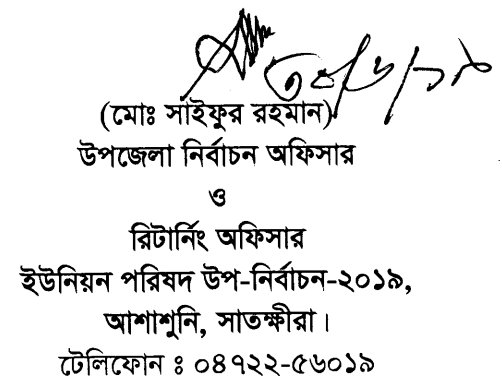 ৩০/৬/১৯
(মোঃ সাইফুর রহমান)
উপজেলা নির্বাচন অফিসার
ও
রিটার্নিং অফিসার
ইউনিয়ন পরিষদ উপ-নির্বাচন-২০১৯,
আশাশুনি, সাতক্ষীরা।
টেলিফোন ঃ ০৪৭২২-৫৬০১৯